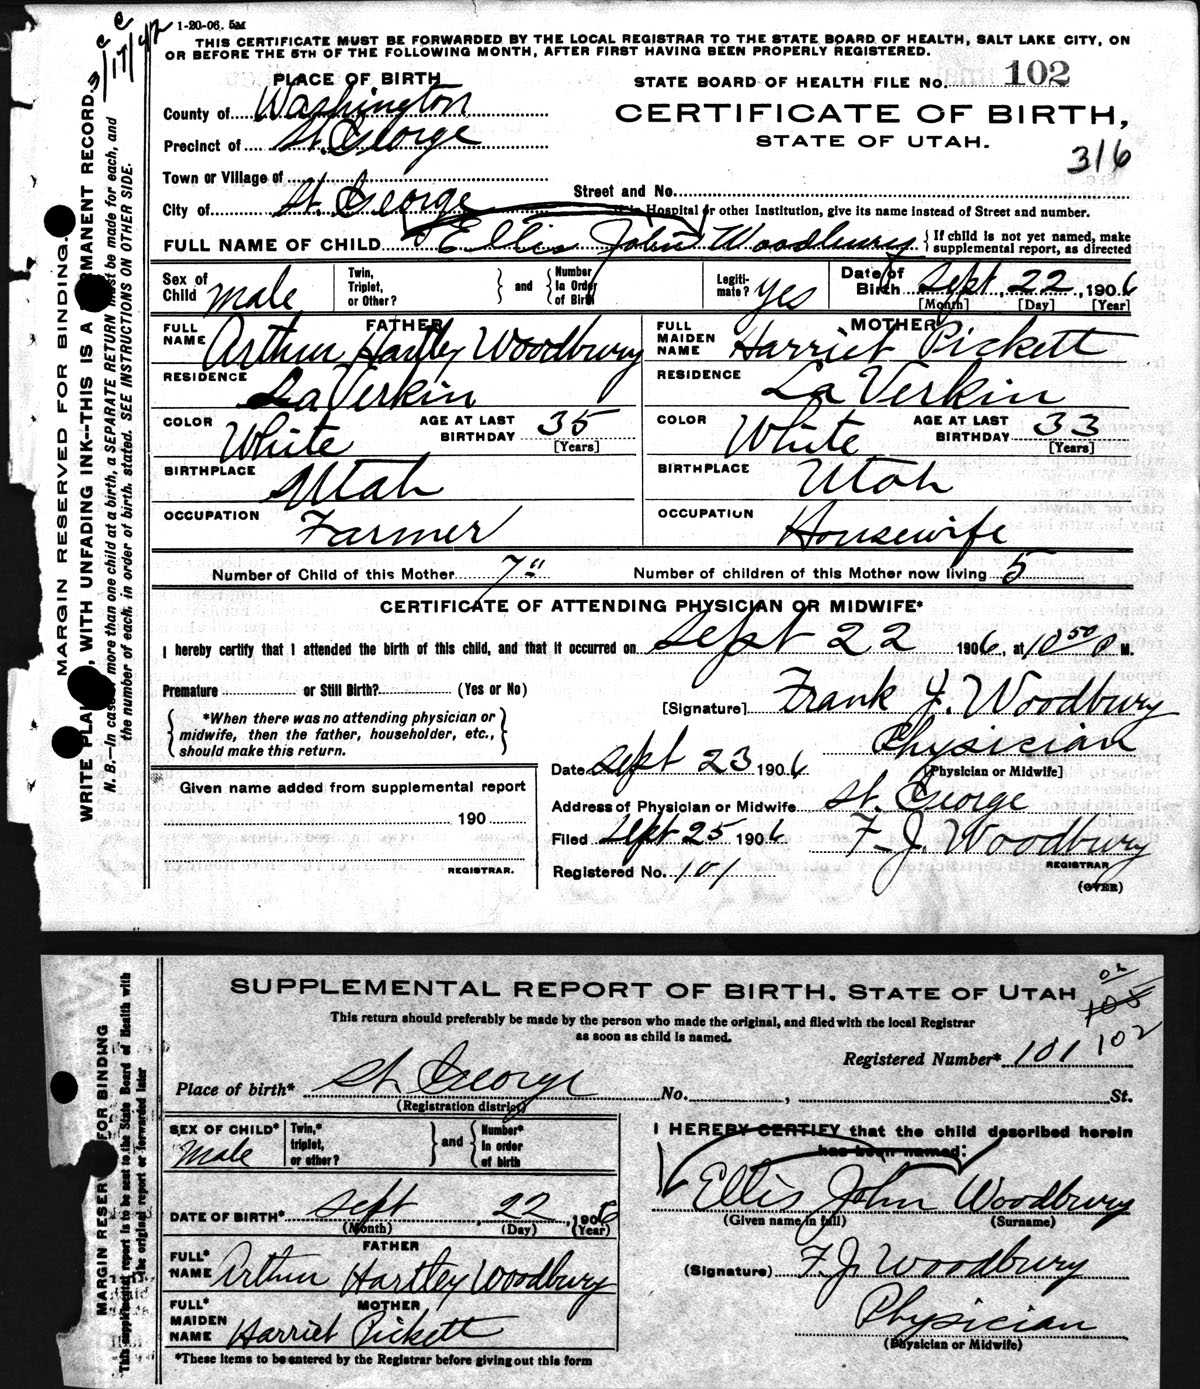 1-20-06. 5M
THIS CERTIFICATE MUST BE FORWARDED BY THE LOCAL REGISTRAR TO THE STATE BOARD OF HEALTH, SALT LAKE CITY, ON
OR BEFORE THE 5TH OF THE FOLLOWING MONTH, AFTER FIRST HAVING BEEN PROPERLY REGISTERED.
PLACE OF BIRTH
STATE BOARD OF HEALTH FILE No. 102
County of Washington
CERTIFICATE OF BIRTH,
Precinct of St. George
STATE OF UTAH.
316
Town or Village of
Street and No.
City of St. George
If in Hospital or other Institution, give its name instead of Street and number.
FULL NAME OF CHILD Ellis John Woodbury { If child is not yet named, make supplemental report, as directed
Sex of Child Male
Twin, Triplet, or Other? } and { Number In Order of Birth
Legitimate? yes
Date of Birth Sept, 22, 1906
[Month] [Day] [Year]
FATHER
FULL NAME Arthur Hartley Woodbury
MOTHER
FULL MAIDEN NAME Harriet Pickett
RESIDENCE LaVerkin
RESIDENCE La Verkin
COLOR White AGE AT LAST BIRTHDAY 35 [Years]
COLOR White AGE AT LAST BIRTHDAY 33 [Years]
BIRTHPLACE Utah
BIRTHPLACE Utah
OCCUPATION Farmer
OCCUPATION Housewife
Number of Child of this Mother 7" Number of children of this Mother now living 5
CERTIFICATE OF ATTENDING PHYSICIAN OR MIDWIFE*
I hereby certify that I attended the birth of this child, and that it occurred on Sept 22 1906, at 10 50 P M.
Premature or Still Birth? (Yes or No)
[Signature] Frank J. Woodbury
{ *When there was no attending physician or midwife, then the father, householder, etc., should make this return. }
Physician
[Physician or Midwife]
Date Sept 23 1906
Given name added from supplemental report
190
REGISTRAR.
Address of Physician or Midwife St. George
Filed Sept 25 1906 F. J. Woodbury
REGISTRAR
Registered No. 101
(OVER)
MARGIN RESERVED FOR BINDING.
WRITE PLAI, WITH UNFADING INK--THIS IS A MANENT RECORD.
N. B.—In case more than one child at a birth, a SEPARATE RETURN must be made for each, and
the number of each, in order of birth, stated. SEE INSTRUCTIONS ON OTHER SIDE.
SUPPLEMENTAL REPORT OF BIRTH. STATE OF UTAH
This return should preferably be made by the person who made the original, and filed with the local Registrar
as soon as child is named.
Registered Number* 101 102
Place of birth* St. George No. , St.
(Registration district)
SEX OF CHILD* Male
Twin,* triplet, or other? } and { Number* In order of birth
I HEREBY CERTIFY that the child described herein
has been named:
Ellis John Woodbury
(Given name in full) (Surname)
DATE OF BIRTH* Sept, 22, 1906
(Month) (Day) (Year)
FATHER
FULL* NAME Arthur Hartley Woodbury
(Signature) F. J. Woodbury
MOTHER
FULL* MAIDEN NAME Harriet Pickett
Physician
(Physician or Midwife)
*These items to be entered by the Registrar before giving out this form
MARGIN RESERV FOR BINDING
This supplemental report is to be sent to the State Board of Health with
the original report or forwarded later